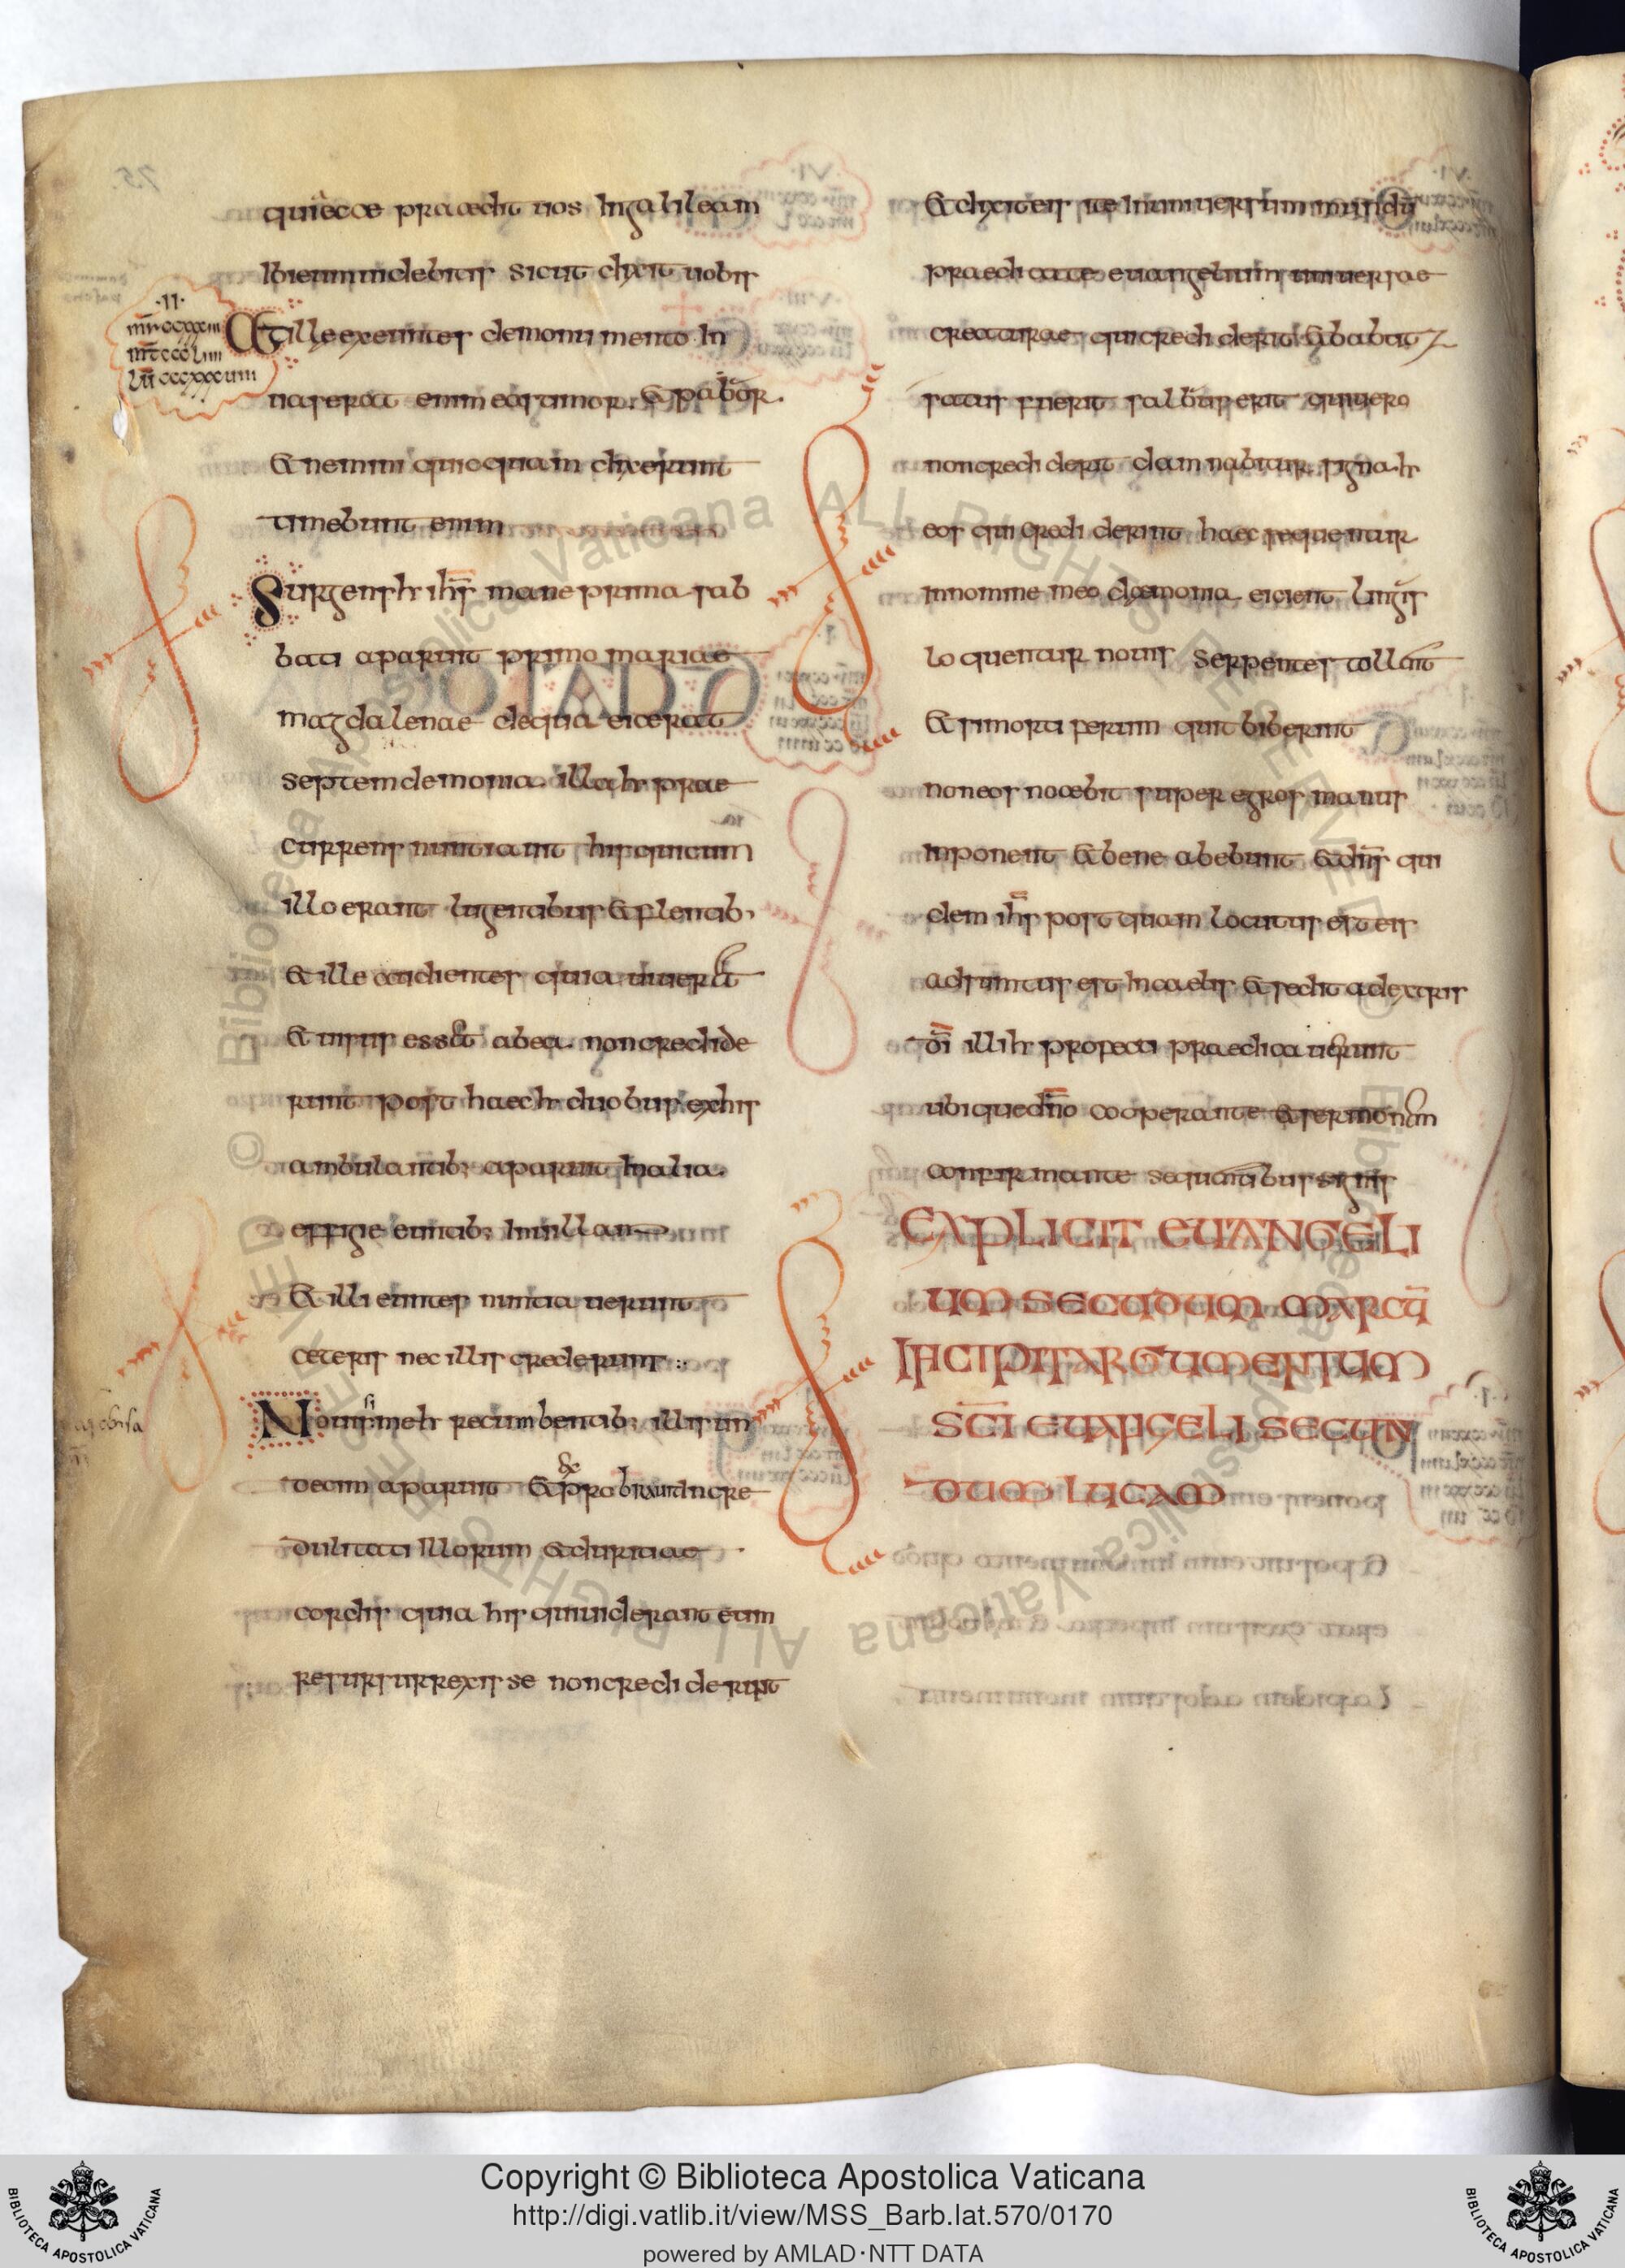 quiecce praecedit uos in galileam
ibi eum uidebitis sicut dixit uobis
·II·
Et ille exeuntes de monumento in
uaserat enim eas timor. et pabor.
et nemini quicquam dixerunt
timebunt enim
Surgens h ihs mane prima sab
bati aparuit primo mariae
magdalenae de qua eicerat
septem demonia. illa h prae
currens nuntiauit his qui cum
illo erant lugentibus et flentib;
et ille audientes quia uiueret
et uisus esset ab ea non credide
runt post haec h duobus ex his
ambulantib; aparuit in alia.
effigie euntib; in uillam
et illi euntes nuntiauerunt
ceteris nec illis crederunt
Nouissime h recumbentib; illis un
decim aparuit et exprobrauit incre
dulitati illorum et duritiae
cordis quia his qui uiderant eum
resursurrexisse non crediderunt
et dixit eis ite in uniuersum mundū
praedicate euangelium uniuersae
creaturae qui crediderit et babtit
zatus fuerit saluus erit qui uero
non crediderit damnabitur signa h
eos qui crediderint haec sequentur
in nomine meo daemonia eicient linguis
loquentur nouis serpentes tollent
et si morti ferum quit biberint
non eos nocebit super egros manus
inponent et bene abebunt et dns qui
dem ihs post quam locutus est eis
adsumtus est in caelis et sedit a dextris
di illi h profecti praedicauerunt
ubique dno cooperante et sermonem
confirmante sequentibus signis
EXPLICIT EUANGELI
UM SECUDUM MARCŪ
INCIPIT ARGUMENTUM
SCI EUANGELI SECUN
DUM LUCAM
Copyright © Biblioteca Apostolica Vaticana
http://digi.vatlib.it/view/MSS_Barb.lat.570/0170
powered by AMLAD·NTT DATA
BIBLIOTECA APOSTOLICA VATICANA
BIBLIOTECA APOSTOLICA VATICANA